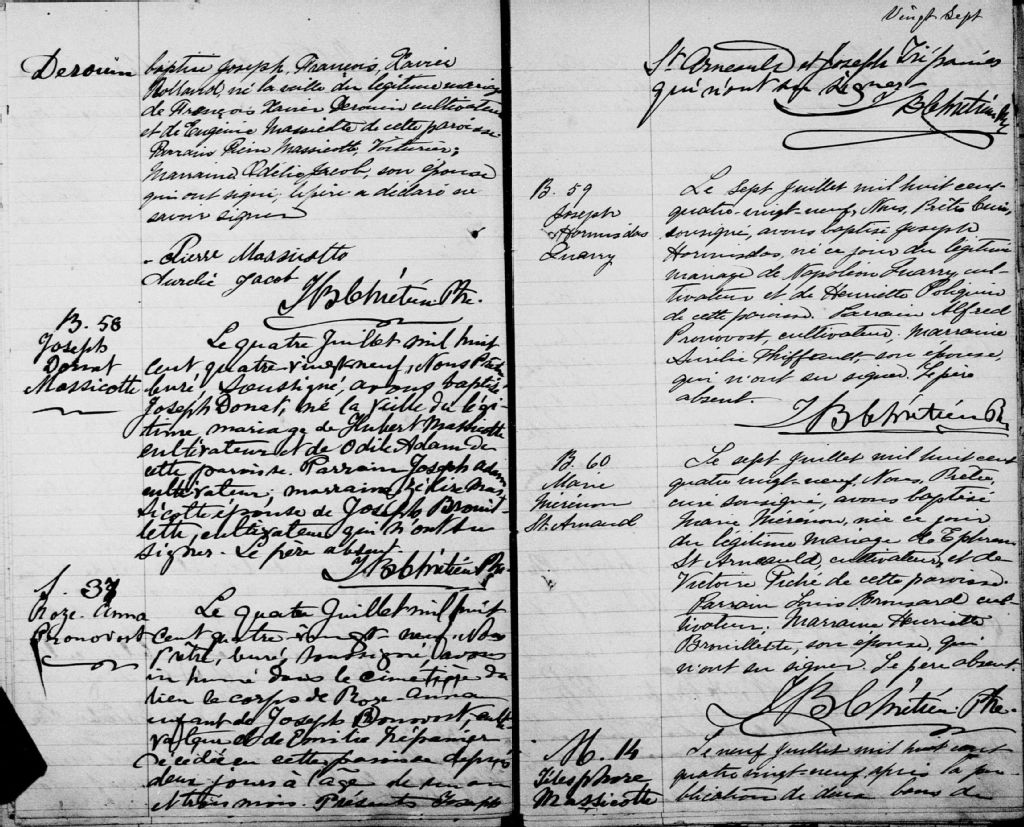 Derouin
baptisé Joseph, François, Xavier
né la veille du légitime mariage
de François Xavier Derouin cultivateur
et de Eugénie Massicotte de cette paroisse
Parrain Massicotte, Voiturier;
Marraine Jacob, son épouse
qui ont signé, le père a déclaré ne
savoir signer
Pierre Massicotte
Aurélie Jacob
JB Chrétien Ptre.
B. 58
Joseph
Donat
Massicotte
Le quatre Juillet mil huit
cent, quatre-vingt-neuf, Nous Prêtre
Curé, soussigné, avons baptisé
Joseph Donat, né la veille du légi-
time mariage de Hubert Massicotte
cultivateur et de Odile Adam de
cette paroisse. Parrain Joseph Adam
cultivateur; marraine, Mas-
sicotte épouse de Joseph Brouil-
lette, cultivateur qui n'ont su
signer. Le père absent.
JB Chrétien Ptre.
S. 37
Roze-Anna
Pronovost
Le quatre Juillet mil huit
cent quatre-vingt-neuf, Nous
Prêtre, Curé, soussigné, avons
inhumé dans le cimetière du
lieu le corps de Roze-Anna
enfant de Joseph Pronovost, culti-
vateur et de Emilie Trépanier
décédée en cette paroisse depuis
deux jours à l'âge de un an
et trois mois. Présents Joseph
Vingt Sept
St Arneault et Joseph Trépanier
qui n'ont su signer
JB Chrétien Ptre
B. 59
Joseph
Hormisdas
Quarry
Le sept Juillet mil huit cent
quatre-vingt-neuf, Nous, Prêtre Curé,
soussigné, avons baptisé Joseph
Hormisdas, né ce jour du légitime
mariage de Napoléon Quarry, cul-
tivateur et de Henriette Poliquin
de cette paroisse. Parrain Alfred
Pronovost, cultivateur; Marraine
Aurélie Thiffeault, son épouse,
qui n'ont su signer. Le père
absent.
JB Chrétien Ptre
B. 60
Marie
Mérénon
St. Arnaud
Le sept Juillet mil huit cent
quatre-vingt-neuf, Nous, Prêtre,
curé soussigné, avons baptisé
Marie Mérénon, née ce jour
du légitime mariage de Ephrem
St Arneauld, cultivateur, et de
Victoire de cette paroisse.
Parrain Louis Broussard cul-
tivateur; Marraine Henriette
Brouillette, son épouse, qui
n'ont su signer. Le père absent
JB Chrétien Ptre.
M. 14
Télesphore
Massicotte
Le neuf Juillet mil huit cent
quatre-vingt-neuf, après la pu-
blication de deux bans de